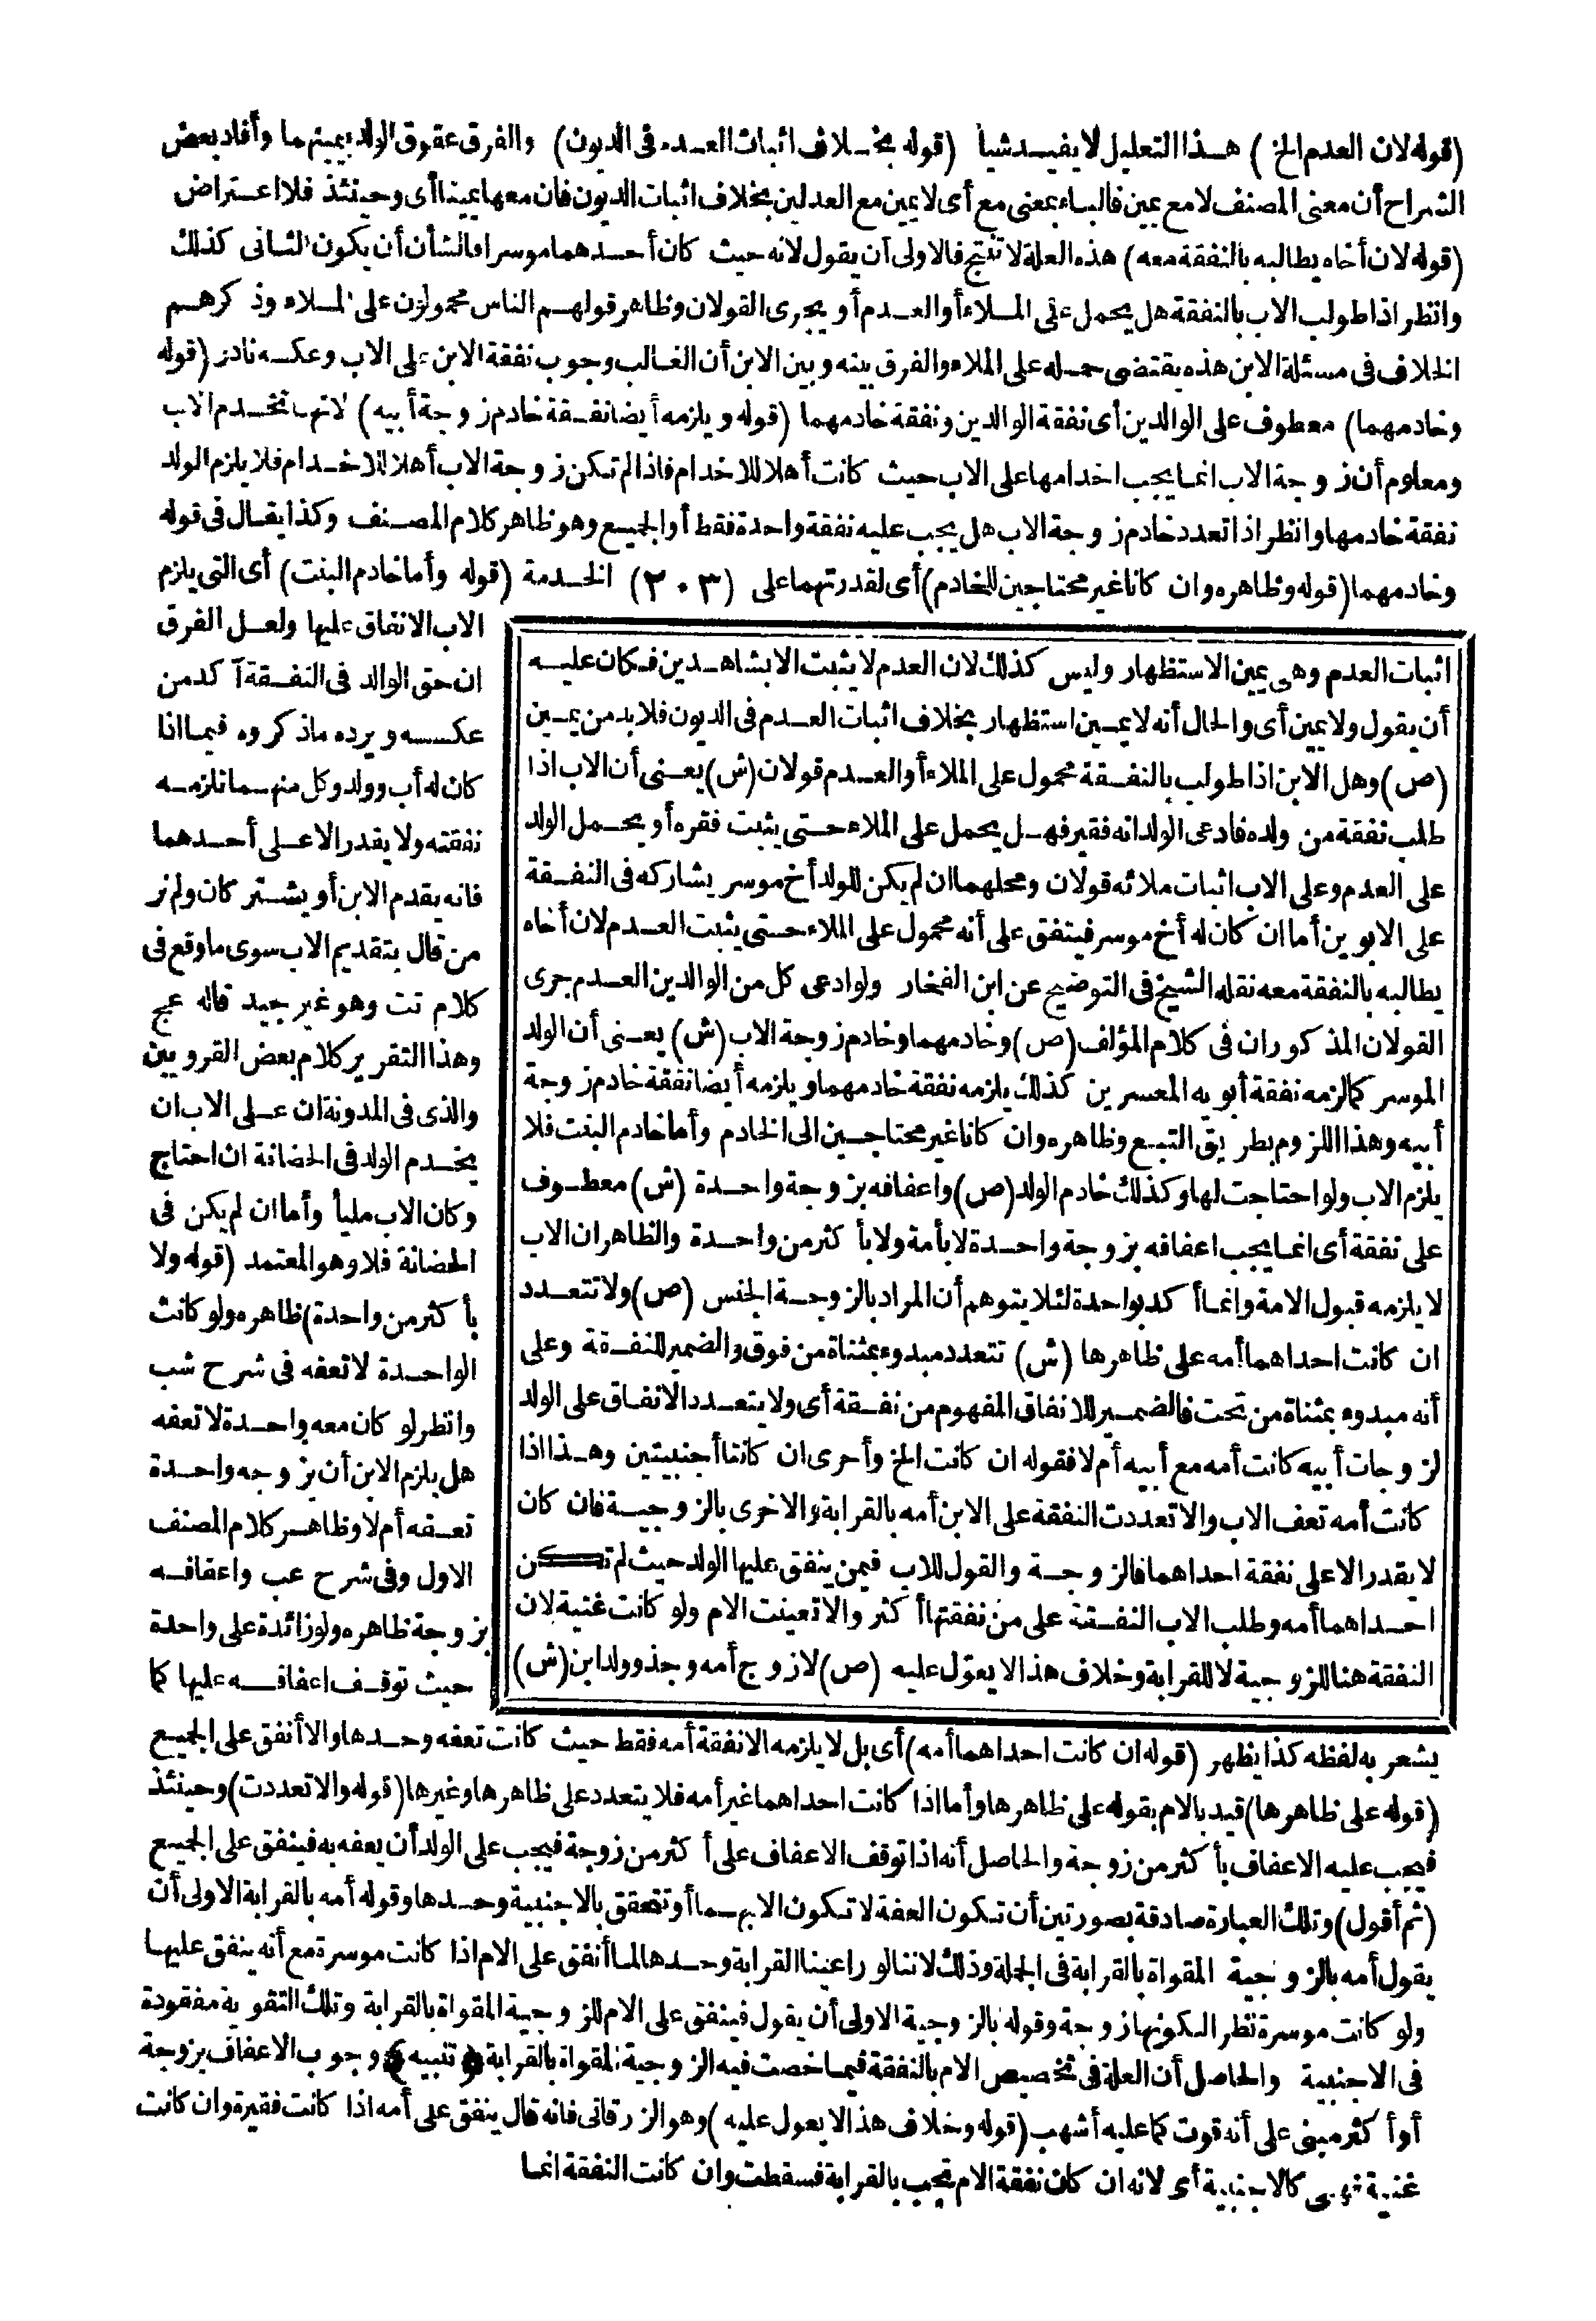 (قوله لان العدم الخ) هذا التعليل لا يفيد شيأ (قوله بخلاف اثبات العدم فى الديون) والفرق عقوق الولد بيمينهما وأفاد بعض
الشراح أن معنى المصنف لا مع يمين فالباء بمعنى مع أى لا يمين مع العدلين بخلاف اثبات الديون فان معها يمينا أى وحينئذ فلا اعتراض
(قوله لان أخاه يطالبه بالنفقة معه) هذه العلة لا تنتج فالاولى أن يقول لانه حيث كان أحدهما موسرا فالشأن أن يكون الثانى كذلك
وانظر اذا طولب الاب بالنفقة هل يحمل على الملاء أو العدم أو يجرى القولان وظاهر قولهم الناس محمولون على الملاء وذكرهم
الخلاف فى مسئلة الابن هذه يقتضى حمله على الملاء والفرق بينه وبين الابن أن الغالب وجوب نفقة الابن على الاب وعكسه نادر (قوله
وخادمهما) معطوف على الوالدين أى نفقة الوالدين ونفقة خادمهما (قوله ويلزمه أيضا نفقة خادم زوجة أبيه) لانها تخدم الاب
ومعلوم أن زوجة الاب انما يجب اخدامها على الاب حيث كانت أهلا للاخدام فاذا لم تكن زوجة الاب أهلا للاخدام فلا يلزم الولد
نفقة خادمها وانظر اذا تعدد خادم زوجة الاب هل يجب عليه نفقة واحدة فقط أو الجميع وهو ظاهر كلام المصنف وكذا يقال فى قوله
وخادمهما (قوله وظاهره وان كانا غير محتاجين للخادم) أى لقدرتهما على (٢٠٣) الخدمة (قوله وأما خادم البنت) أى التى يلزم
الاب الانفاق عليها ولعل الفرق
ان حق الوالد فى النفقة آكد من
عكسه ويرده ماذكروه فيما اذا
كان له أب وولد وكل منهما تلزمه
نفقته ولا يقدر الا على أحدهما
فانه يقدم الابن أو يشتركان ولم نر
من قال بتقديم الاب سوى ما وقع فى
كلام تت وهو غير جيد قاله عج
وهذا التقرير كلام بعض القرويين
والذى فى المدونة ان على الاب ان
يخدم الولد فى الحضانة ان احتاج
وكان الاب مليأ وأما ان لم يكن فى
الحضانة فلا وهو المعتمد (قوله ولا
بأكثر من واحدة) ظاهره ولو كانت
الواحدة لا تعفه فى شرح شب
وانظر لو كان معه واحدة لا تعفه
هل يلزم الابن أن يزوجه واحدة
تعفه أم لا وظاهر كلام المصنف
الاول وفى شرح عب واعفافه
بزوجة ظاهره ولو زائدة على واحدة
حيث توقف اعفافه عليها كما
اثبات العدم وهى يمين الاستظهار وليس كذلك لان العدم لا يثبت الا بشاهدين فكان عليه
أن يقول ولا يمين أى والحال أنه لا يمين استظهار بخلاف اثبات العدم فى الديون فلا بد من يمين
(ص) وهل الابن اذا طولب بالنفقة محمول على الملاء أو العدم قولان (ش) يعنى أن الاب اذا
طلب نفقة من ولده فادعى الولد انه فقير فهل يحمل على الملاء حتى يثبت فقره أو يحمل الولد
على العدم وعلى الاب اثبات ملائه قولان ومحلهما ان لم يكن للولد أخ موسر يشاركه فى النفقة
على الابوين أما ان كان له أخ موسر فيتفق على أنه محمول على الملاء حتى يثبت العدم لان أخاه
يطالبه بالنفقة معه نقله الشيخ فى التوضيح عن ابن الفخار ولو ادعى كل من الوالدين العدم جرى
القولان المذكوران فى كلام المؤلف (ص) وخادمهما وخادم زوجة الاب (ش) يعنى أن الولد
الموسر كما لزمه نفقة أبويه المعسرين كذلك يلزمه نفقة خادمهما ويلزمه أيضا نفقة خادم زوجة
أبيه وهذا اللزوم بطريق التبع وظاهره وان كانا غير محتاجين الى الخادم وأما خادم البنت فلا
يلزم الاب ولو احتاجت لها وكذلك خادم الولد (ص) واعفافه بزوجة واحدة (ش) معطوف
على نفقة أى انما يجب اعفافه بزوجة واحدة لا بأمة ولا بأكثر من واحدة والظاهر ان الاب
لا يلزمه قبول الامة وانما أكد بواحدة لئلا يتوهم أن المراد بالزوجة الجنس (ص) ولا تتعدد
ان كانت احداهما أمه على ظاهرها (ش) تتعدد مبدوء بمثناة من فوق والضمير للنفقة وعلى
أنه مبدوء بمثناة من تحت فالضمير للانفاق المفهوم من نفقة أى ولا يتعدد الانفاق على الولد
لزوجات أبيه كانت أمه مع أبيه أم لا فقوله ان كانت الخ وأحرى ان كانتا أجنبيتين وهذا اذا
كانت أمه تعف الاب والا تعددت النفقة على الابن أمه بالقرابة والاخرى بالزوجية فان كان
لا يقدر الا على نفقة احداهما فالزوجة والقول للاب فيمن ينفق عليها الولد حيث لم تكن
احداهما أمه وطلب الاب النفقة على من نفقتها أكثر والا تعينت الام ولو كانت غنية لان
النفقة هنا للزوجية لا للقرابة وخلاف هذا لا يعول عليه (ص) لا زوج أمه وجد وولد ابن (ش)
يشعر به لفظه كذا يظهر (قوله ان كانت احداهما أمه) أى بل لا يلزمه الا نفقة أمه فقط حيث كانت تعفه وحدها والا أنفق على الجميع
(قوله على ظاهرها) قيد بالام بقوله على ظاهرها وأما اذا كانت احداهما غير أمه فلا يتعدد على ظاهرها وغيرها (قوله والا تعددت) وحينئذ
فيجب عليه الاعفاف بأكثر من زوجة والحاصل أنه اذا توقف الاعفاف على أكثر من زوجة فيجب على الولد أن يعفه به فينفق على الجميع
(ثم أقول) وتلك العبارة صادقة بصورتين أن تكون العفة لا تكون الا بهما أو تتحقق بالاجنبية وحدها وقوله أمه بالقرابة الاولى أن
يقول أمه بالزوجية المقواة بالقرابة فى الجملة وذلك لاننا لو راعينا القرابة وحدها لما أنفق على الام اذا كانت موسرة مع أنه ينفق عليها
ولو كانت موسرة نظرا لكونها زوجة وقوله بالزوجية الاولى أن يقول فينفق على الام للزوجية المقواة بالقرابة وتلك التقوية مفقودة
فى الاجنبية والحاصل أن العلة فى تخصيص الام بالنفقة فيما خصت فيه الزوجية المقواة بالقرابة (تنبيه) وجوب الاعفاف بزوجة
أو أكثر مبنى على أنه قوت كما عليه أشهب (قوله وخلاف هذا لا يعول عليه) وهو الزرقانى فانه قال ينفق على أمه اذا كانت فقيرة وان كانت
غنية فهى كالاجنبية أى لانه ان كان نفقة الام تجب بالقرابة فسقطت وان كانت النفقة انما